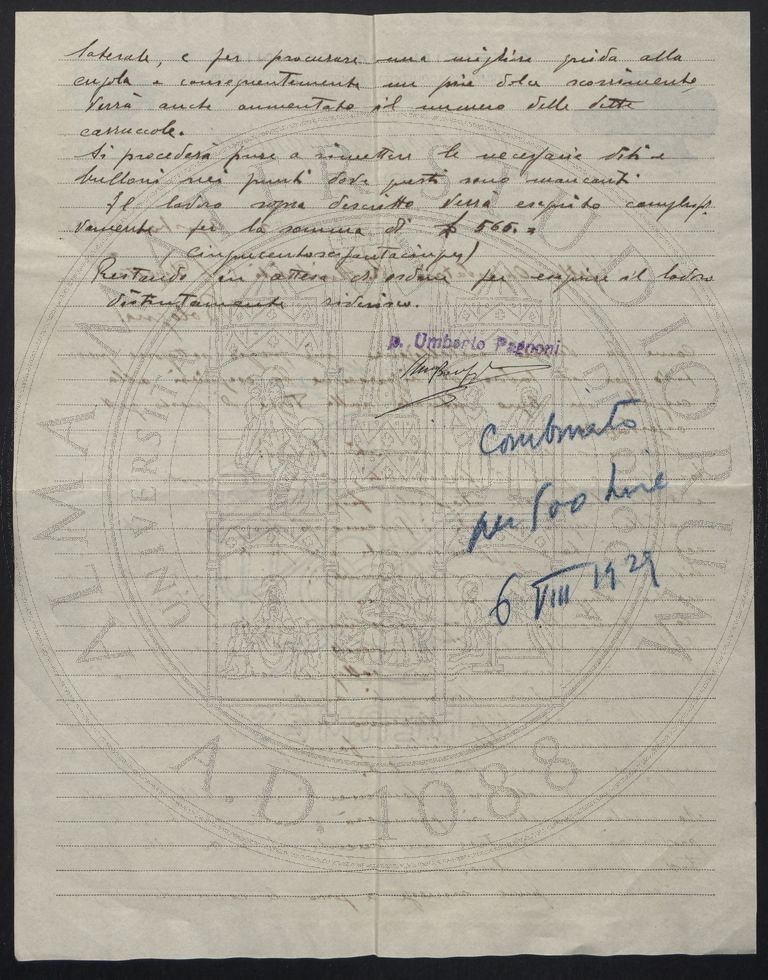 laterale, e per procurare una migliore guida alla
cupola e conseguentemente un più dolce scorrimento,
verrà anche aumentato il numero delle dette
carrucole.
Si procederà pure a rimettere le necessarie viti e
bulloni nei punti dove questi sono mancanti
Il lavoro sopra descritto verrà eseguito complessi-
vamente per la somma di £ 565.=
(cinquecentosessantacinque)
Restando in attesa di ordini per eseguire il lavoro
distintamente riverisco.
p. Umberto Pagnoni
Combinato
per 500 lire
6 VIII 1929
ALMA MATER STUDIORUM
A.D. 1088